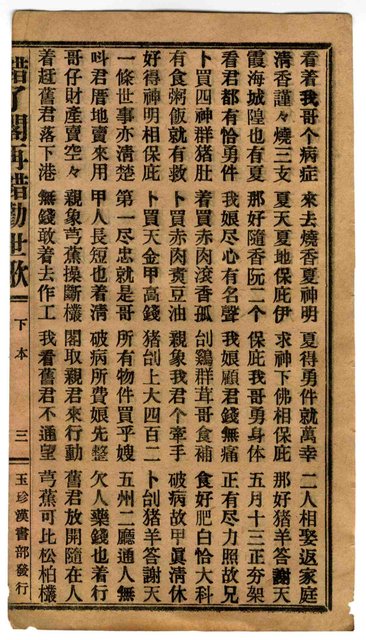 看着我哥个病症　來去燒香夏神明　夏得勇件就萬幸　二人相娶返家庭
清香謹々燒三支　夏天夏地保庇伊　求神下佛相保庇　那好猪羊答謝天
霞海城隍也有夏　那好隨香阮二个　保庇我哥勇身体　五月十三正夯架
看君都有恰勇件　我娘尽心有名聲　我娘顧君錢無痛　正有尽力照故兄
卜買四神群猪肚　着買赤肉滾香孤　刣鷄群茸哥食補　食好肥白恰大科
有食粥飯就有救　卜買赤肉煑豆油　親象我君个牽手　破病故甲眞清休
好得神明相保庇　卜買天金甲高錢　猪刣上大四百二　卜刣猪羊答謝天
一條世事亦清楚　第一尽忠就是哥　所有物件買乎嫂　五州二廳通人無
呌君厝地賣來用　甲人長短也着清　破病所費娘先整　欠人藥錢也着行
哥仔財產賣空々　親象芎蕉操斷欉　閣取親君來行動　舊君放開隨在人
着赶舊君落下港　無錢敢着去作工　我看舊君不通望　芎蕉可比松柏欉
錯了閣再錯勸世歌　下本　三　玉珍漢書部發行